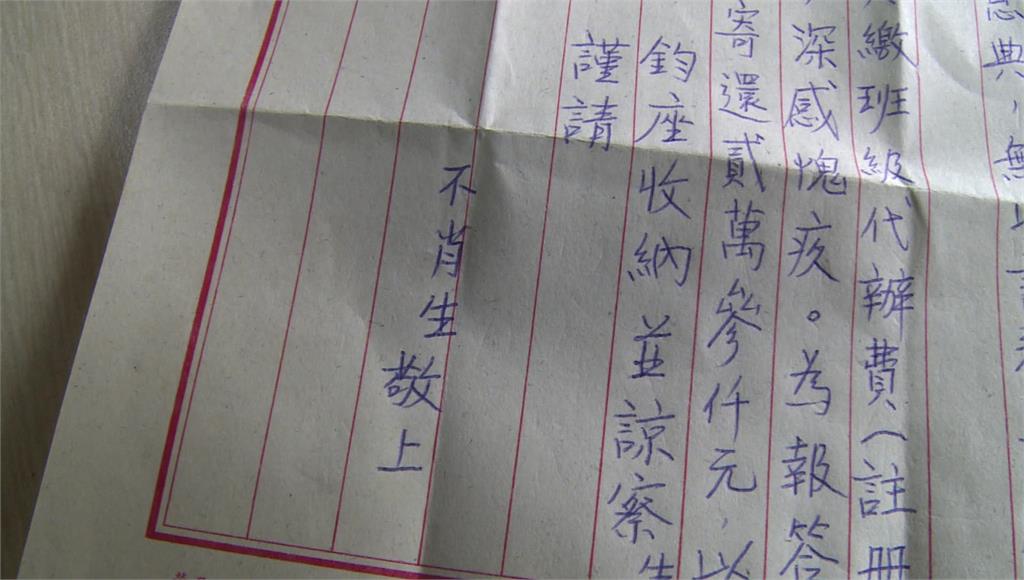 典，無
繳班級代辦費（註册
，深感愧疚。為報答
寄還貳萬參仟元，以
鈞座收納並諒察生
謹請
不肖生敬上